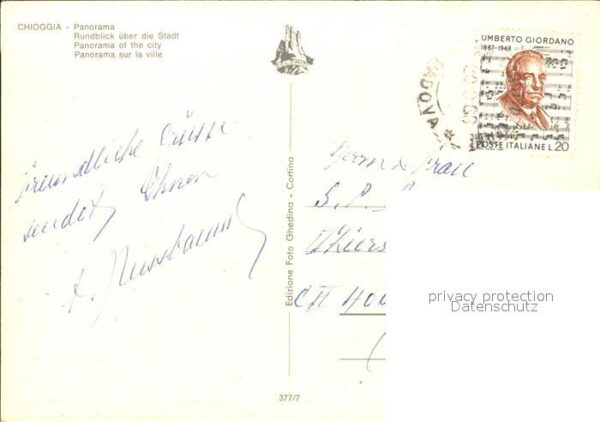 CHIOGGIA - Panorama
Rundblick über die Stadt
Panorama of the city
Panorama sur la ville
UMBERTO GIORDANO
1867-1948
POSTE ITALIANE L. 20
PADOVA
freundliche Grüsse
sendet Ihnen
A. Nussbaumer
Herrn & Frau
S. P.
CH 400
Edizione Foto Ghedina - Cortina
377/7
privacy protection
Datenschutz